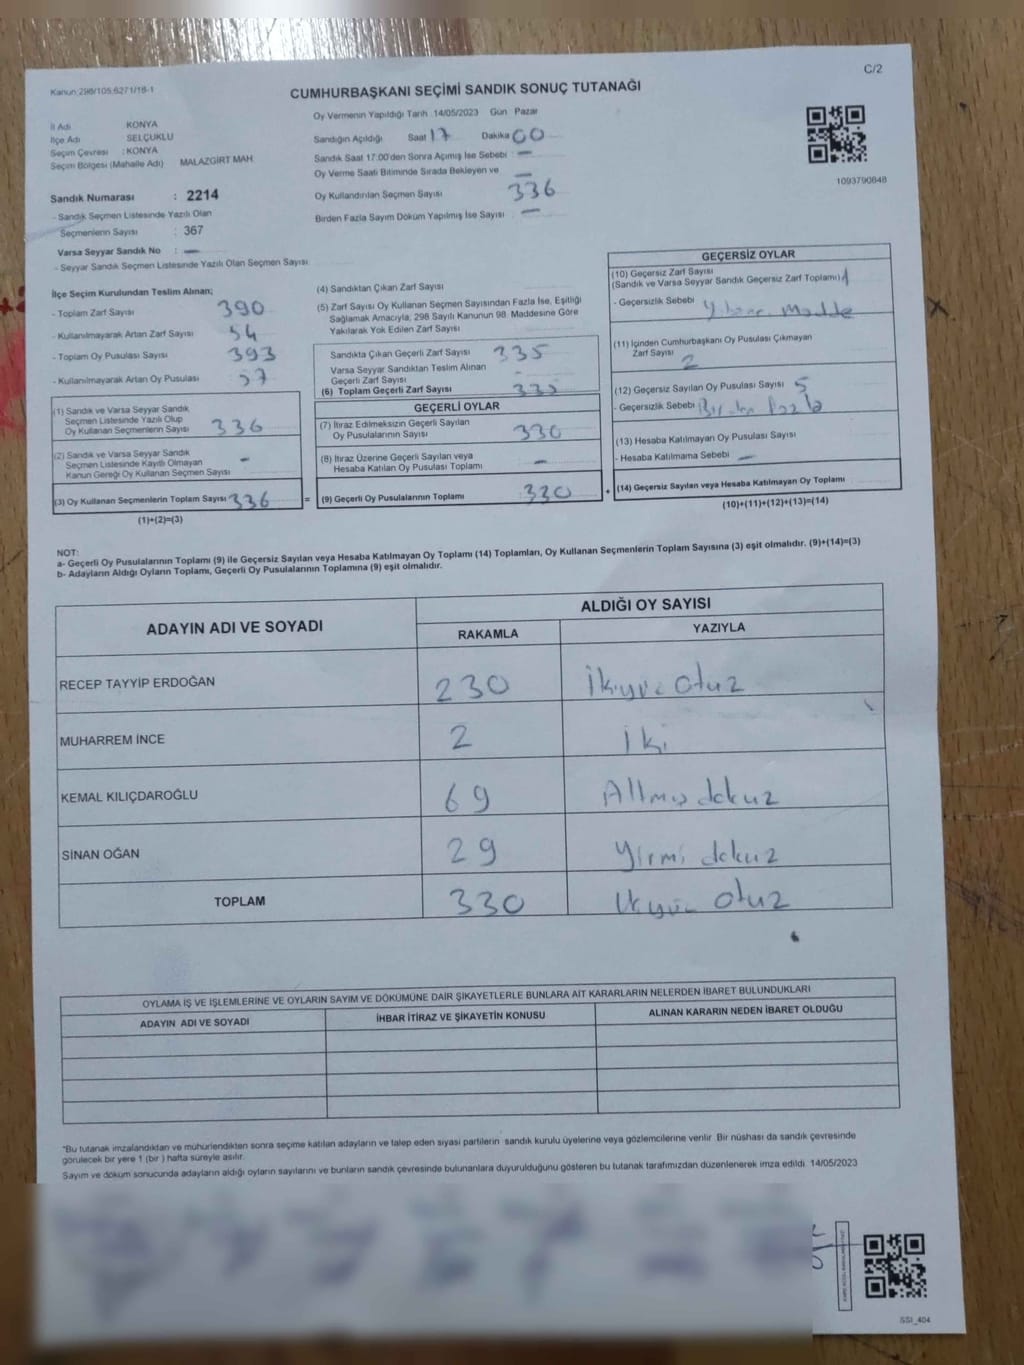 C/2
Kanun 298/105.6271/18-1
CUMHURBAŞKANI SEÇİMİ SANDIK SONUÇ TUTANAĞI
İl Adı KONYA
İlçe Adı SELÇUKLU
Seçim Çevresi : KONYA
Seçim Bölgesi (Mahalle Adı) MALAZGİRT MAH.
Sandık Numarası : 2214
- Sandık Seçmen Listesinde Yazılı Olan
Seçmenlerin Sayısı : 367
Varsa Seyyar Sandık No : —
- Seyyar Sandık Seçmen Listesinde Yazılı Olan Seçmen Sayısı
Oy Vermenin Yapıldığı Tarih 14/05/2023 Gün Pazar
Sandığın Açıldığı Saat 17 Dakika 00
Sandık Saat 17.00'den Sonra Açımış İse Sebebi : —
Oy Verme Saati Bitiminde Sırada Bekleyen ve —
Oy Kullandırılan Seçmen Sayısı 336
Birden Fazla Sayım Döküm Yapılmış İse Sayısı : —
1093790848
İlçe Seçim Kurulundan Teslim Alınan;
- Toplam Zarf Sayısı 390
- Kullanılmayarak Artan Zarf Sayısı 54
- Toplam Oy Pusulası Sayısı 393
- Kullanılmayarak Artan Oy Pusulası 57
(1) Sandık ve Varsa Seyyar Sandık
Seçmen Listesinde Yazılı Olup
Oy Kullanan Seçmenlerin Sayısı 336
(2) Sandık ve Varsa Seyyar Sandık
Seçmen Listesinde Kayıtlı Olmayan
Kanun Gereği Oy Kullanan Seçmen Sayısı -
(3) Oy Kullanan Seçmenlerin Toplam Sayısı 336
(1)+(2)=(3)
(4) Sandıktan Çıkan Zarf Sayısı
(5) Zarf Sayısı Oy Kullanan Seçmen Sayısından Fazla İse, Eşitliği
Sağlamak Amacıyla, 298 Sayılı Kanunun 98. Maddesine Göre
Yakılarak Yok Edilen Zarf Sayısı
Sandıkta Çıkan Geçerli Zarf Sayısı 335
Varsa Seyyar Sandıktan Teslim Alınan
Geçerli Zarf Sayısı
(6) Toplam Geçerli Zarf Sayısı 335
GEÇERLİ OYLAR
(7) İtiraz Edilmeksizin Geçerli Sayılan
Oy Pusulalarının Sayısı 330
(8) İtiraz Üzerine Geçerli Sayılan veya
Hesaba Katılan Oy Pusulası Toplamı —
= (9) Geçerli Oy Pusulalarının Toplamı 330
GEÇERSİZ OYLAR
(10) Geçersiz Zarf Sayısı
(Sandık ve Varsa Seyyar Sandık Geçersiz Zarf Toplamı) 1
- Geçersizlik Sebebi Madde
(11) İçinden Cumhurbaşkanı Oy Pusulası Çıkmayan
Zarf Sayısı 2
(12) Geçersiz Sayılan Oy Pusulası Sayısı 5
- Geçersizlik Sebebi Birden Fazla
(13) Hesaba Katılmayan Oy Pusulası Sayısı
- Hesaba Katılmama Sebebi —
+ (14) Geçersiz Sayılan veya Hesaba Katılmayan Oy Toplamı
(10)+(11)+(12)+(13)=(14)
NOT:
a- Geçerli Oy Pusulalarının Toplamı (9) ile Geçersiz Sayılan veya Hesaba Katılmayan Oy Toplamı (14) Toplamları, Oy Kullanan Seçmenlerin Toplam Sayısına (3) eşit olmalıdır. (9)+(14)=(3)
b- Adayların Aldığı Oyların Toplamı, Geçerli Oy Pusulalarının Toplamına (9) eşit olmalıdır.
ADAYIN ADI VE SOYADI ALDIĞI OY SAYISI
RAKAMLA YAZIYLA
RECEP TAYYİP ERDOĞAN 230 İkiyüz otuz
MUHARREM İNCE 2 İki
KEMAL KILIÇDAROĞLU 69 Altmış dokuz
SİNAN OĞAN 29 Yirmi dokuz
TOPLAM 330 Üçyüz otuz
OYLAMA İŞ VE İŞLEMLERİNE VE OYLARIN SAYIM VE DÖKÜMÜNE DAİR ŞİKAYETLERLE BUNLARA AİT KARARLARIN NELERDEN İBARET BULUNDUKLARI
ADAYIN ADI VE SOYADI İHBAR İTİRAZ VE ŞİKAYETİN KONUSU ALINAN KARARIN NEDEN İBARET OLDUĞU
*Bu tutanak imzalandıktan ve mühürlendikten sonra seçime katılan adayların ve talep eden siyasi partilerin sandık kurulu üyelerine veya gözlemcilerine verilir. Bir nüshası da sandık çevresinde
görülecek bir yere 1 (bir ) hafta süreyle asılır.
Sayım ve döküm sonucunda adayların aldığı oyların sayılarını ve bunların sandık çevresinde bulunanlara duyurulduğunu gösteren bu tutanak tarafımızdan düzenlenerek imza edildi. 14/05/2023
SSI_404